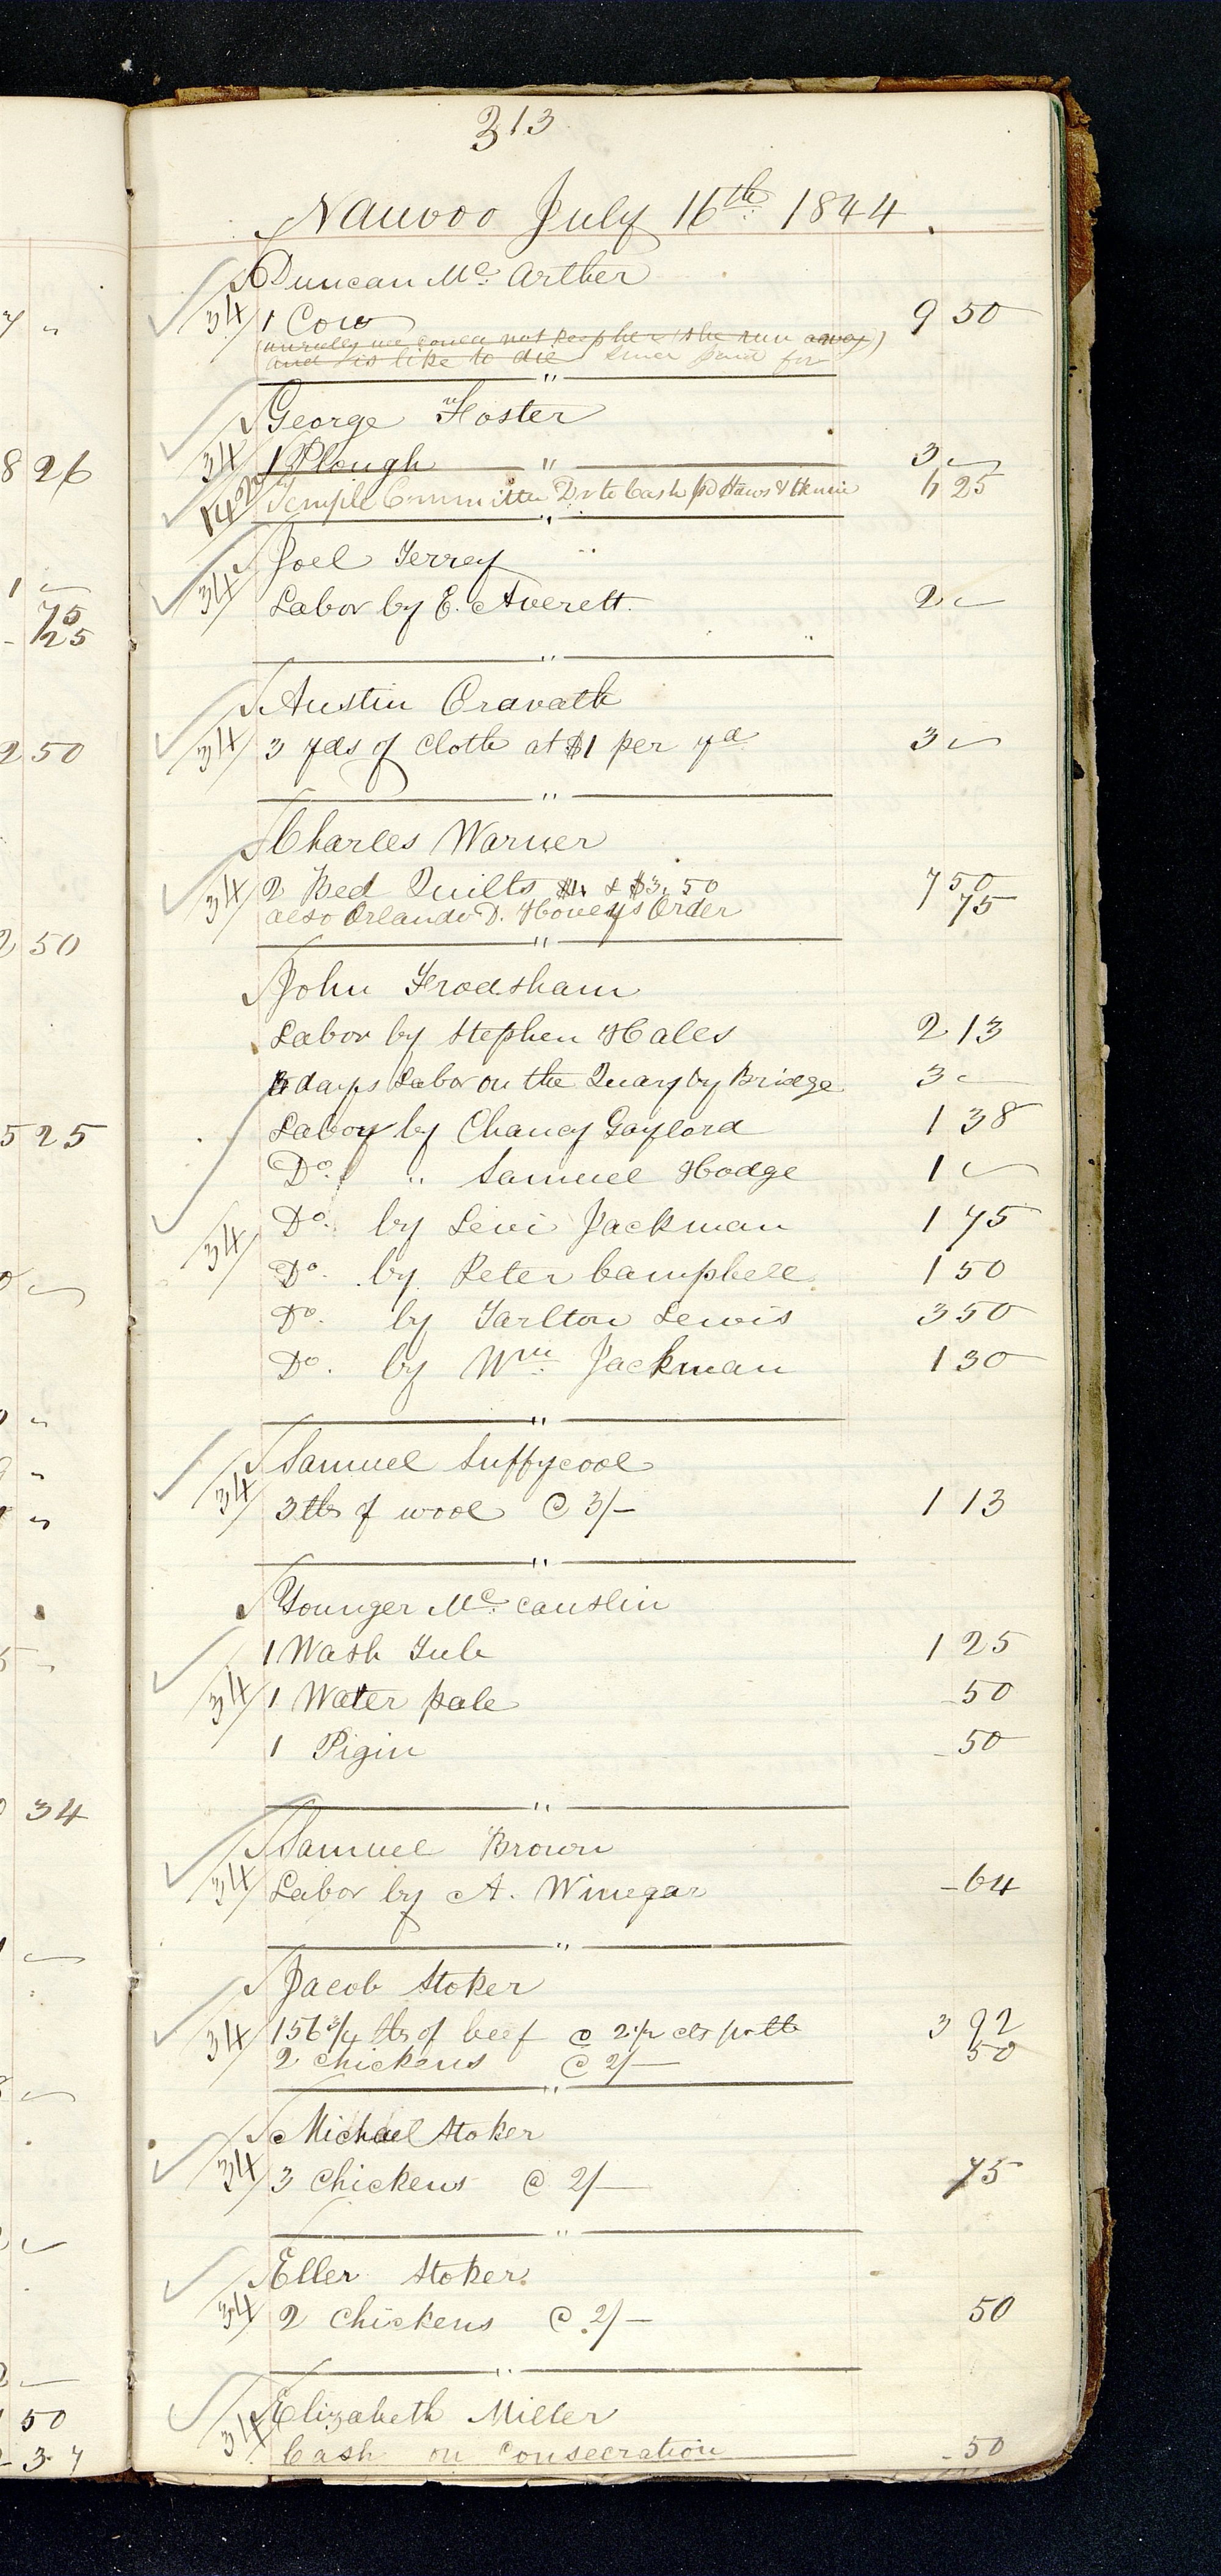 313
Nauvoo July 16th 1844.
Duncan Mc. Arther
34 1 Cow 9 50
(unruly we could not keep her she run away)
and is like to die since paid for
George Foster
34 1 Plough 3 "
Temple Committee Dr to Cash pd Haws & 6 25
Joel Terrey
34 Labor by E. Averett. 2 "
Austin Cravath
34 3 yds of Cloth at $1 per yd 3 "
Charles Warner
34 2 Bed Quilts $4 & $3,50 7 50
also Orlando D. Hovey's Order 75
John Frodsham
Labor by Stephen Hales 2 13
days Labor on the Quary by Bridge 3 "
Labor by Chancy Gaylord 1 38
Do. " Samuel Hodge 1 "
34 Do. by Levi Jackman 1 75
Do. by Peter Campbell 1 50
Do. by Tarlton Lewis 3 50
Do. by Wm. Jackman 1 30
Samuel Suffycool
34 3 lbs of wool @ 3/- 1 13
Younger Mc. Causlin
1 Wash Tub 1 25
34 1 Water pale 50
1 Pigin 50
Samuel Brown
34 Labor by A. Winegar 64
Jacob Stoker
34 156 3/4 lbs of beef @ 2 1/2 cts pr lb 3 92
2 Chickens @ 2/- 50
Michael Stoker
34 3 Chickens @ 2/- 75
Eller Stoker
34 2 Chickens @ 2/- 50
Elizabeth Miller
34 Cash on Consecration 50
8 26
1 "
75
25
2 50
2 50
5 25
34
50
37